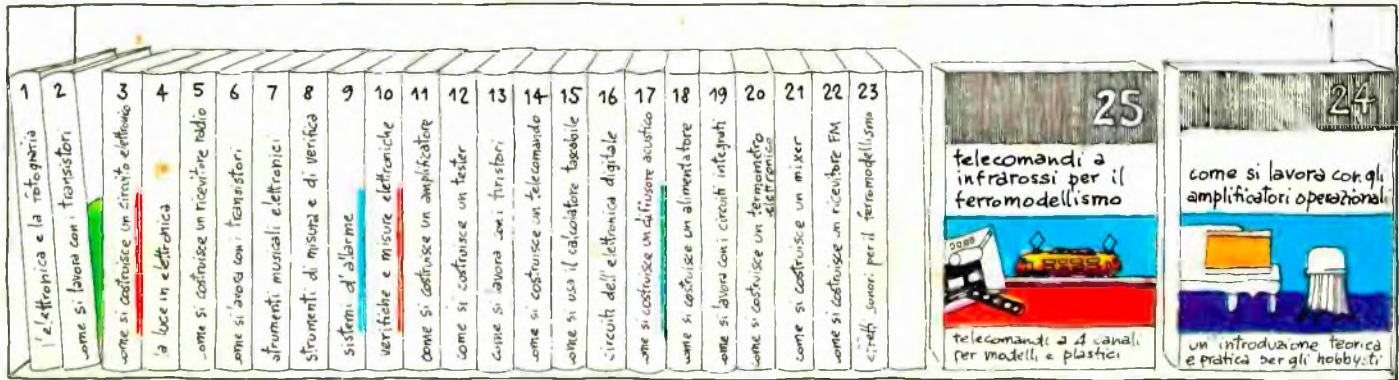 1 l'elettronica e la fotografia
2 come si lavora con i transistori
3 come si costruisce un circuito elettronico
4 la luce in elettronica
5 come si costruisce un ricevitore radio
6 come si lavora con i transistori
7 strumenti musicali elettronici
8 strumenti di misura e di verifica
9 sistemi d'allarme
10 verifiche e misure elettroniche
11 come si costruisce un amplificatore
12 come si costruisce un tester
13 come si lavora con i tiristori
14 come si costruisce un telecomando
15 come si usa il calcolatore tascabile
16 circuiti dell'elettronica digitale
17 come si costruisce un diffusore acustico
18 come si costruisce un alimentatore
19 come si lavora con i circuiti integrati
20 come si costruisce un termometro
elettronico
21 come si costruisce un mixer
22 come si costruisce un ricevitore FM
23 effetti sonori per il ferromodellismo
25
telecomandi a
infrarossi per il
ferromodellismo
telecomandi a 4 canali
per modelli e plastici
24
come si lavora con gli
amplificatori operazionali
un introduzione teorica
e pratica per gli hobbysti